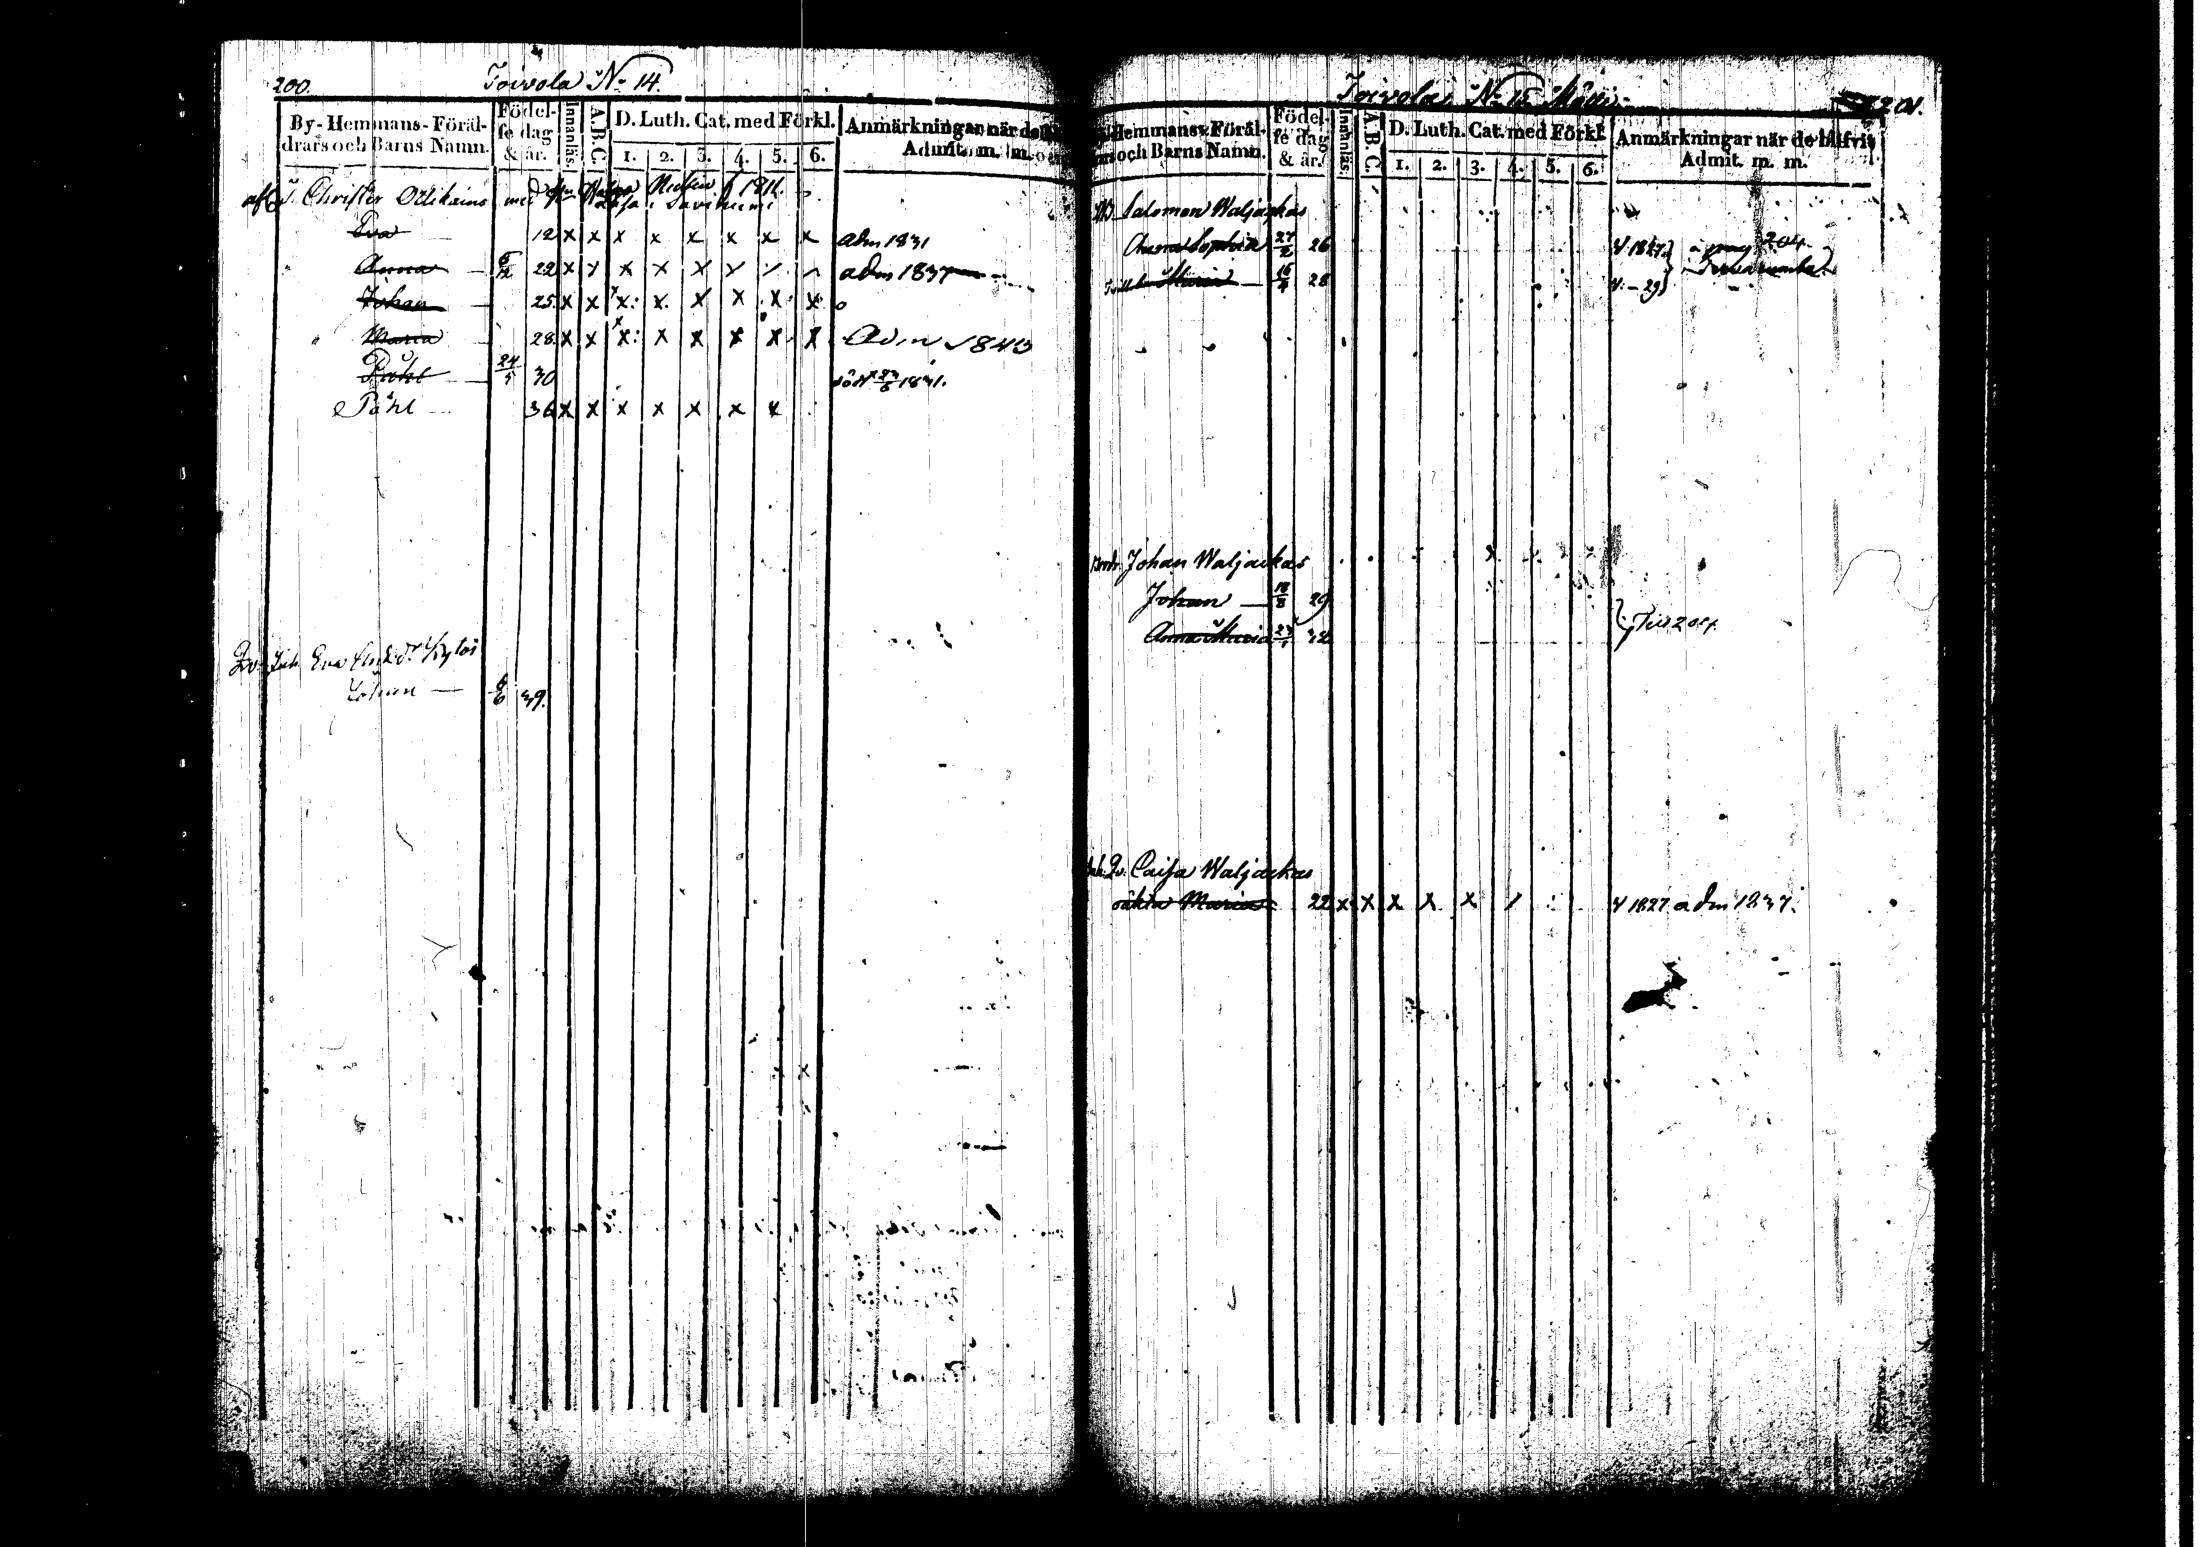 200. Toivola No 14.
By-Hemmans-Föräl-
drars och Barns Namn.
Födel-
se dag
& år.
Innanläs.
A.B.C.
D. Luth. Cat. med Förkl.
1. 2. 3. 4. 5. 6.
Anmärkningar när de
Admit. m. m.
Christer
Eva 12 x x x x x x x x adm 1831
Anna 6/12 22 x x x x x adm 1837
Johan 25 x x x x x x x x
Maria 28 x x x x x x x x Adm 1843
Påhl 24/5 30 död 23/6 1831.
Påhl 36 x x x x x x x
Eva
Johan 6/6 39.
Toivola No 15 201.
Hemmans-Föräl-
och Barns Namn.
Födel-
se dag
& år.
Innanläs.
A.B.C.
D. Luth. Cat. med Förkl.
1. 2. 3. 4. 5. 6.
Anmärkningar när de blifvit
Admit. m. m.
Salomon Waljackas
Anna Sophia 27/2 26 v 1827 204
Maria 16/4 28 v. - 29
Johan Waljackas
Johan 18/8 29
Anna Maria 32 204
Caisa Waljackas
oäkta Maria 22 x x x x x v 1827 adm 1837.